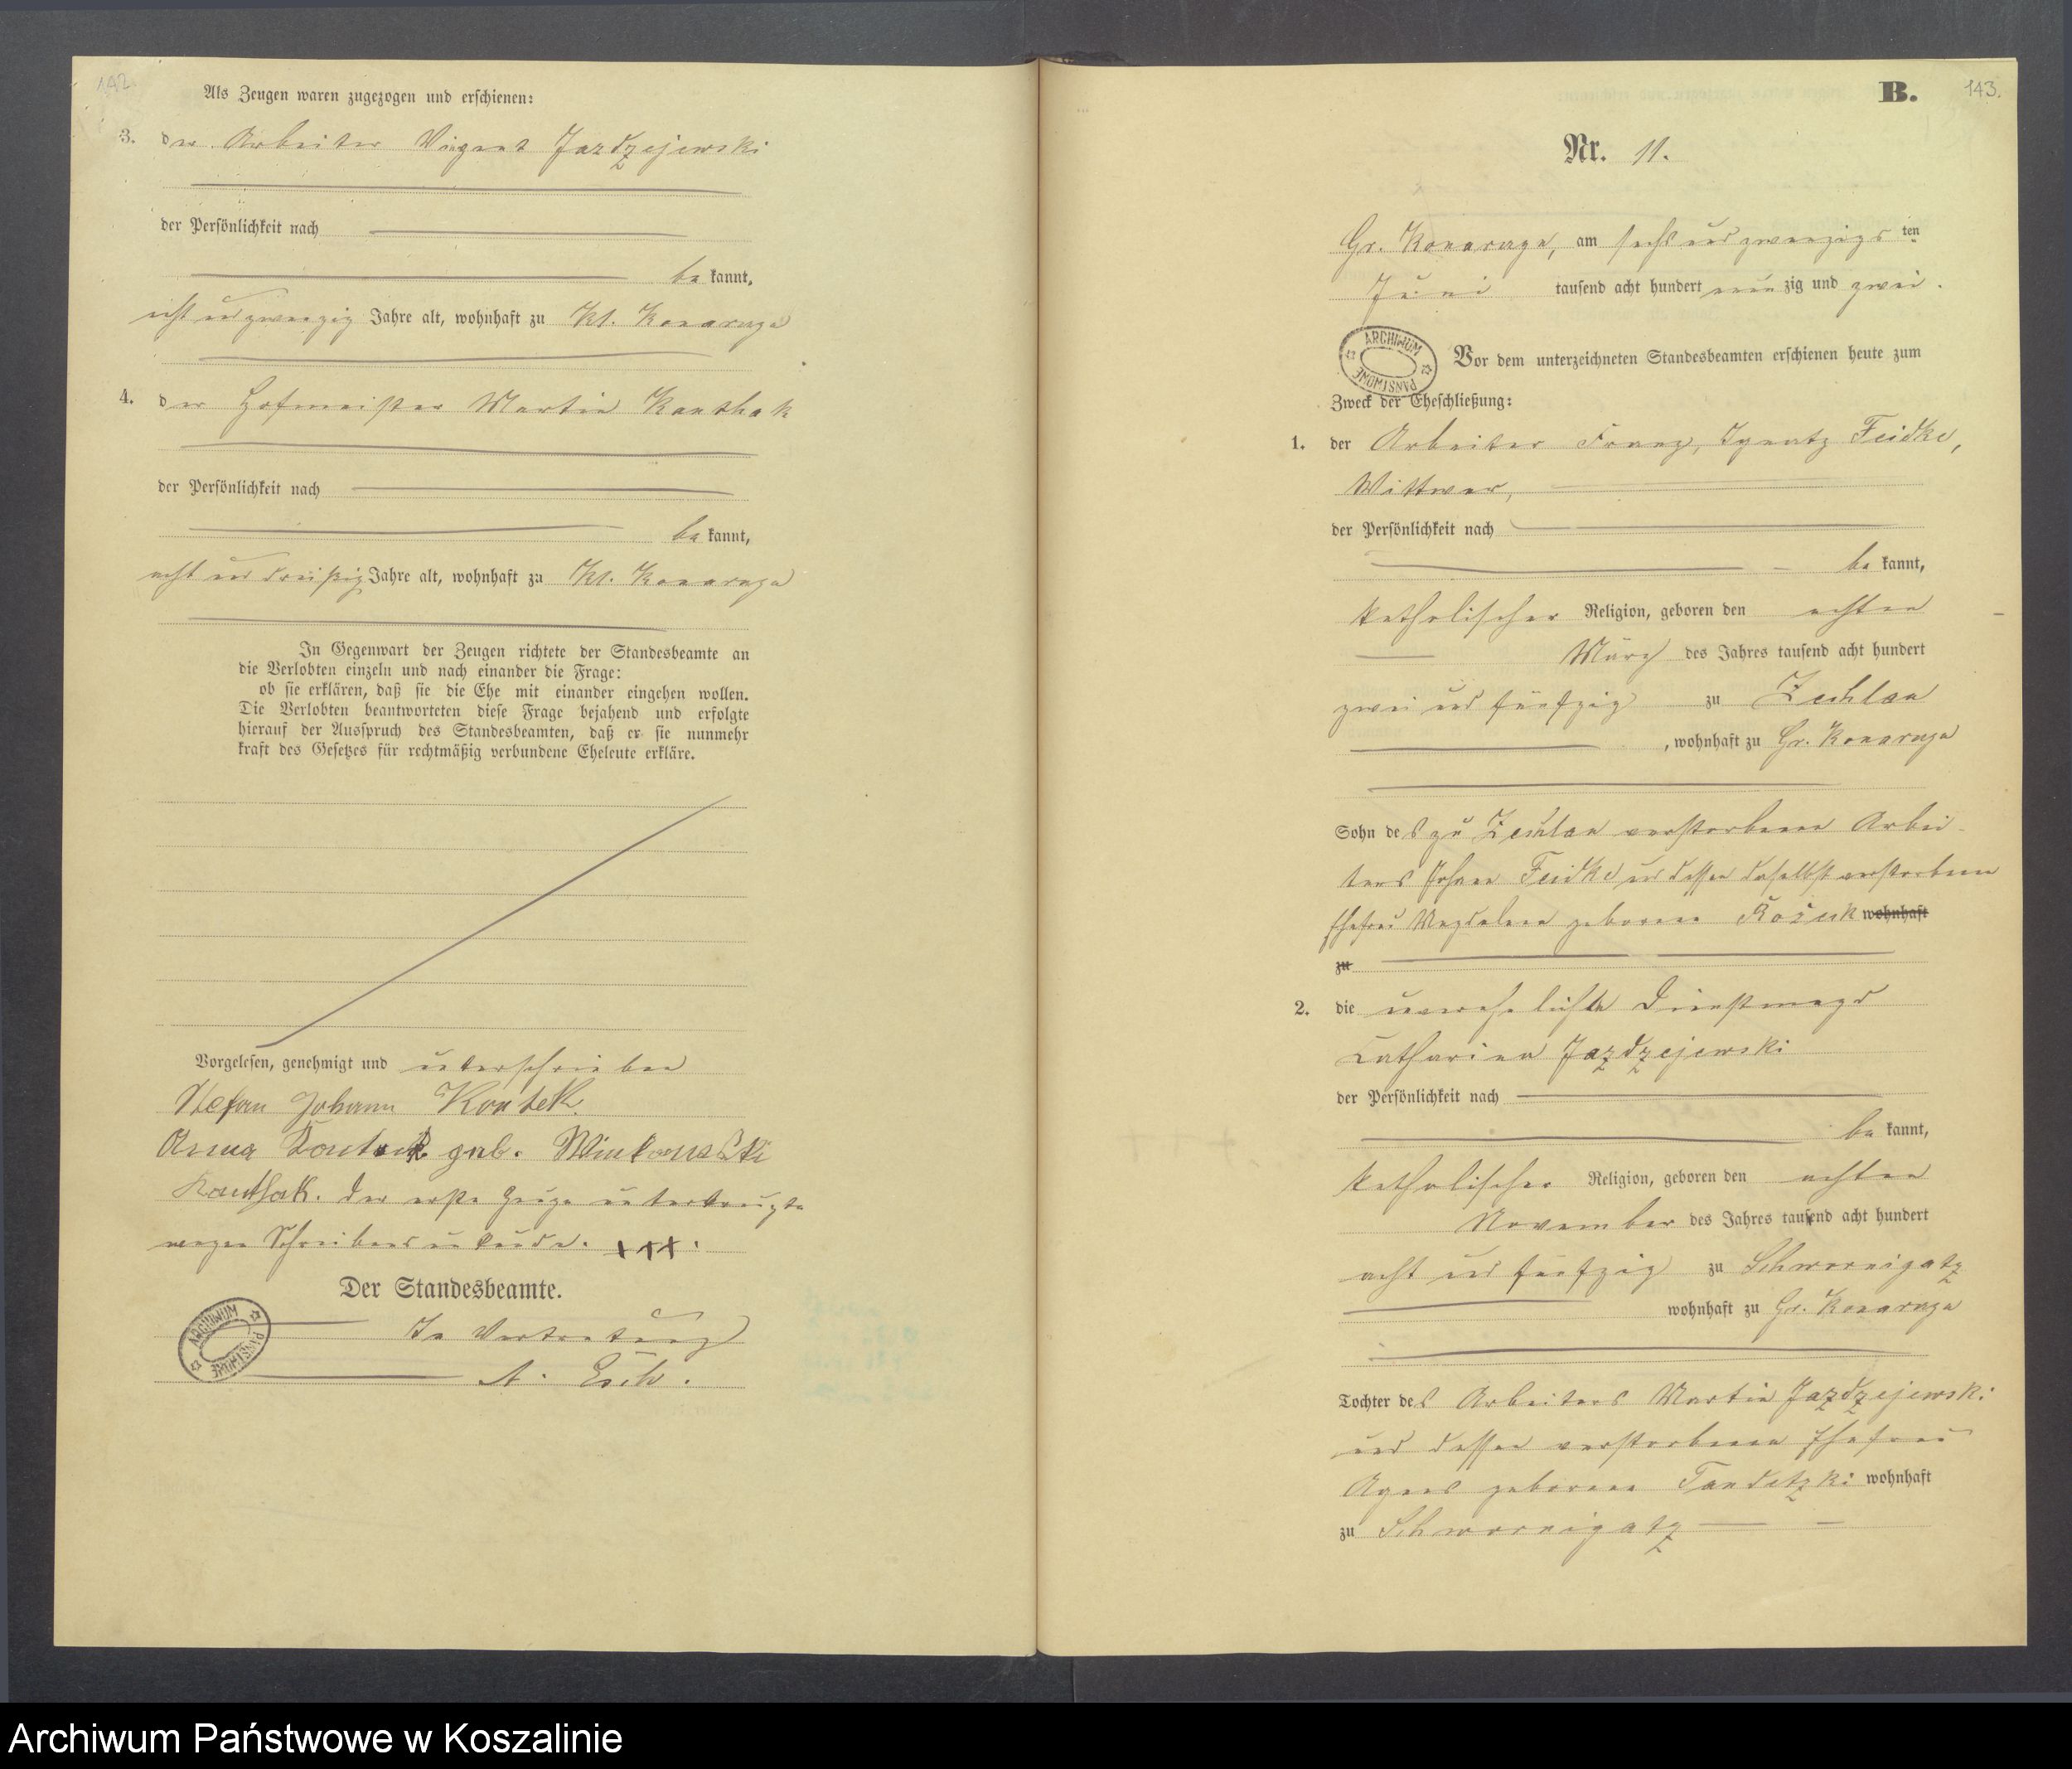 142.
Als Zeugen waren zugezogen und erschienen:
3. der Arbeiter Vigent Jazdzejewski
der Persönlichkeit nach
be kannt,
acht und zwanzig Jahre alt, wohnhaft zu Kl. Konarzyn
4. der Hofmeister Martin Kanthak
der Persönlichkeit nach
be kannt,
acht und dreißig Jahre alt, wohnhaft zu Kl. Konarzyn
In Gegenwart der Zeugen richtete der Standesbeamte an
die Verlobten einzeln und nach einander die Frage:
ob sie erklären, daß sie die Ehe mit einander eingehen wollen.
Die Verlobten beantworteten diese Frage bejahend und erfolgte
hierauf der Ausspruch des Standesbeamten, daß er sie nunmehr
kraft des Gesetzes für rechtmäßig verbundene Eheleute erkläre.
Vorgelesen, genehmigt und unterschrieben
Stefan Johann Kontek.
Anna Kontek geb.
Kanthak. Der erste Zeuge unterkreuzte
wegen Schreibensunkunde. +++.
Der Standesbeamte.
ARCHIWUM PAŃSTWOWE
In Vertretung
A.
B. 143.
Nr. 11.
Gr. Konarzyn, am sechs und zwanzigs ten
Juni tausend acht hundert neun zig und zwei.
ARCHIWUM PAŃSTWOWE
Vor dem unterzeichneten Standesbeamten erschienen heute zum
Zweck der Eheschließung:
1. der Arbeiter Franz, Ignatz Feidke,
Wittwer,
der Persönlichkeit nach
be kannt,
katholischer Religion, geboren den achten
März des Jahres tausend acht hundert
zwei und fünfzig zu Zechlau
, wohnhaft zu Gr. Konarzyn
Sohn des zu Zechlau verstorbenen Arbei-
ters Johann Feidke und dessen daselbst verstorbenen
Ehefrau Magdalena geborene wohnhaft
zu
2. die unverehelichte Dienstmagd
Catharina Jazdzejewski
der Persönlichkeit nach
be kannt,
katholischer Religion, geboren den achten
November des Jahres tausend acht hundert
acht und fünfzig zu Schwornigatz
wohnhaft zu Gr. Konarzyn
Tochter des Arbeiters Martin Jazdzejewski
und dessen verstorbenen Ehefrau
Agnes geborene Tandetzki wohnhaft
zu Schwornigatz
Archiwum Państwowe w Koszalinie